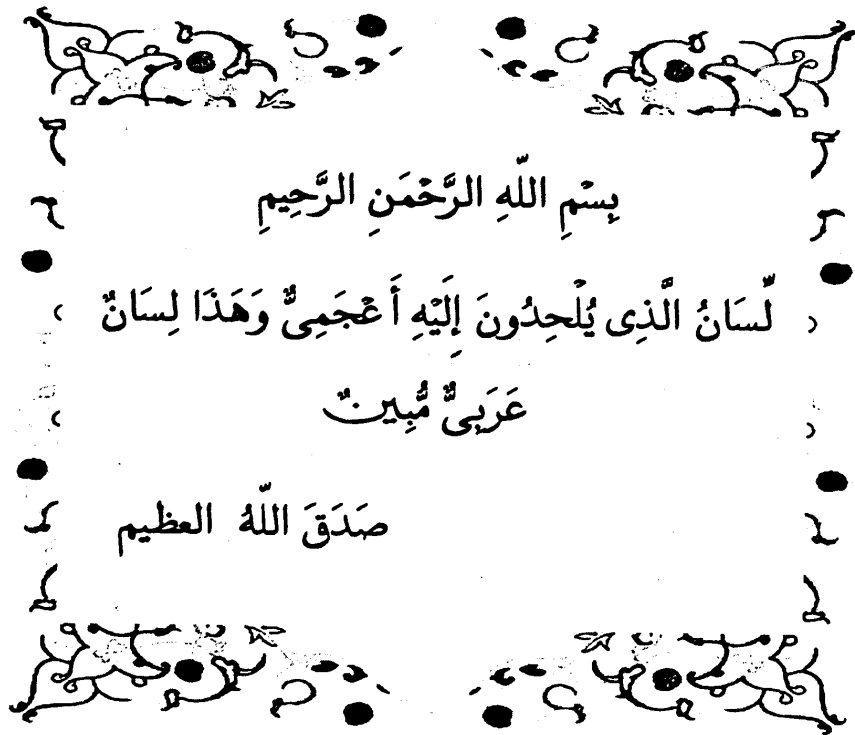 بِسْمِ اللّٰهِ الرَّحْمَنِ الرَّحِيمِ
لِّسَانُ الَّذِى يُلْحِدُونَ إِلَيْهِ أَعْجَمِىٌّ وَهَذَا لِسَانٌ
عَرَبِىٌّ مُّبِينٌ
صَدَقَ اللّٰهُ العظيم